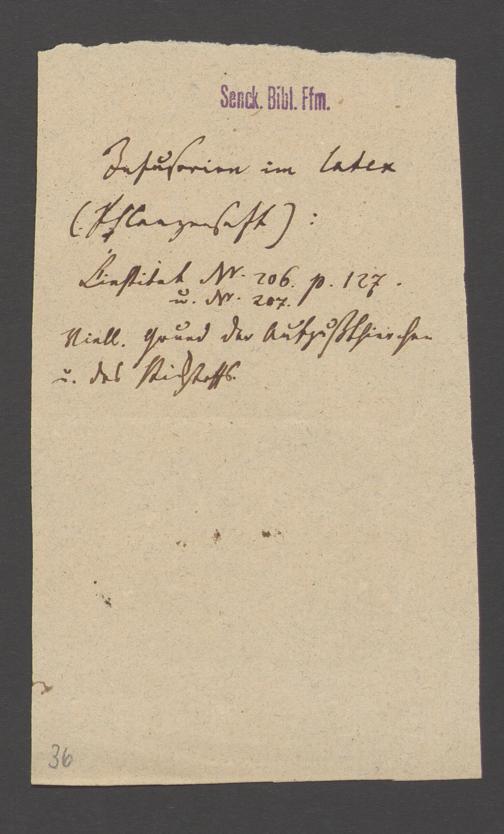 Senck. Bibl. Ffm.
Infusorien im latex
(Pflanzensaft):
L'institut Nr. 206. p. 127.
u. Nr. 207.
Viell. Grund der Aufgußthierchen
u. des Stickstoffs.
36